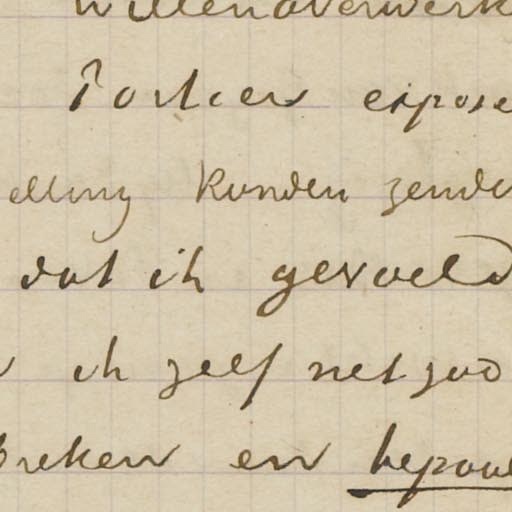 willen overwerk
Portier expose
elling kunden zende
dat ik gevoeld
ik zelf net zoo
breken en bepaal